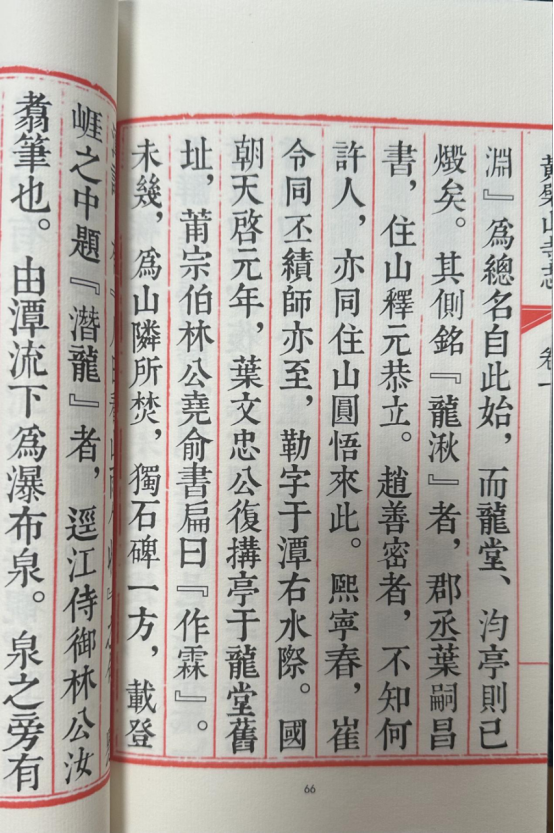 黃檗山寺志
卷一
淵』爲總名自此始，而龍堂、泃亭則已
燬矣。其側銘『龍湫』者，郡丞葉嗣昌
書，住山釋元恭立。趙善密者，不知何
許人，亦同住山圓悟來此。熙寧春，崔
令同丕績師亦至，勒字于潭右水際。國
朝天啓元年，葉文忠公復搆亭于龍堂舊
址，莆宗伯林公堯俞書扁曰『作霖』。
未幾，爲山隣所焚，獨石碑一方，載登
66
崕之中題『潛龍』者，逕江侍御林公汝
翥筆也。由潭流下爲瀑布泉。泉之旁有